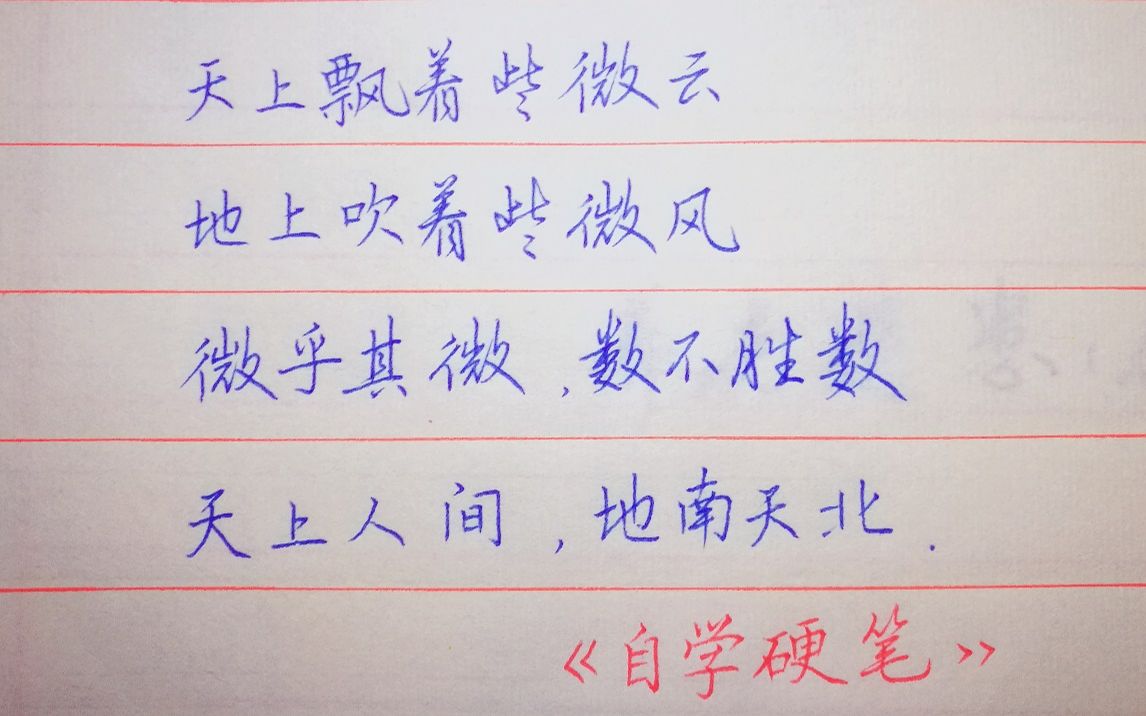 天上飘着些微云
地上吹着些微风
微乎其微,数不胜数
天上人间,地南天北.
《自学硬笔》